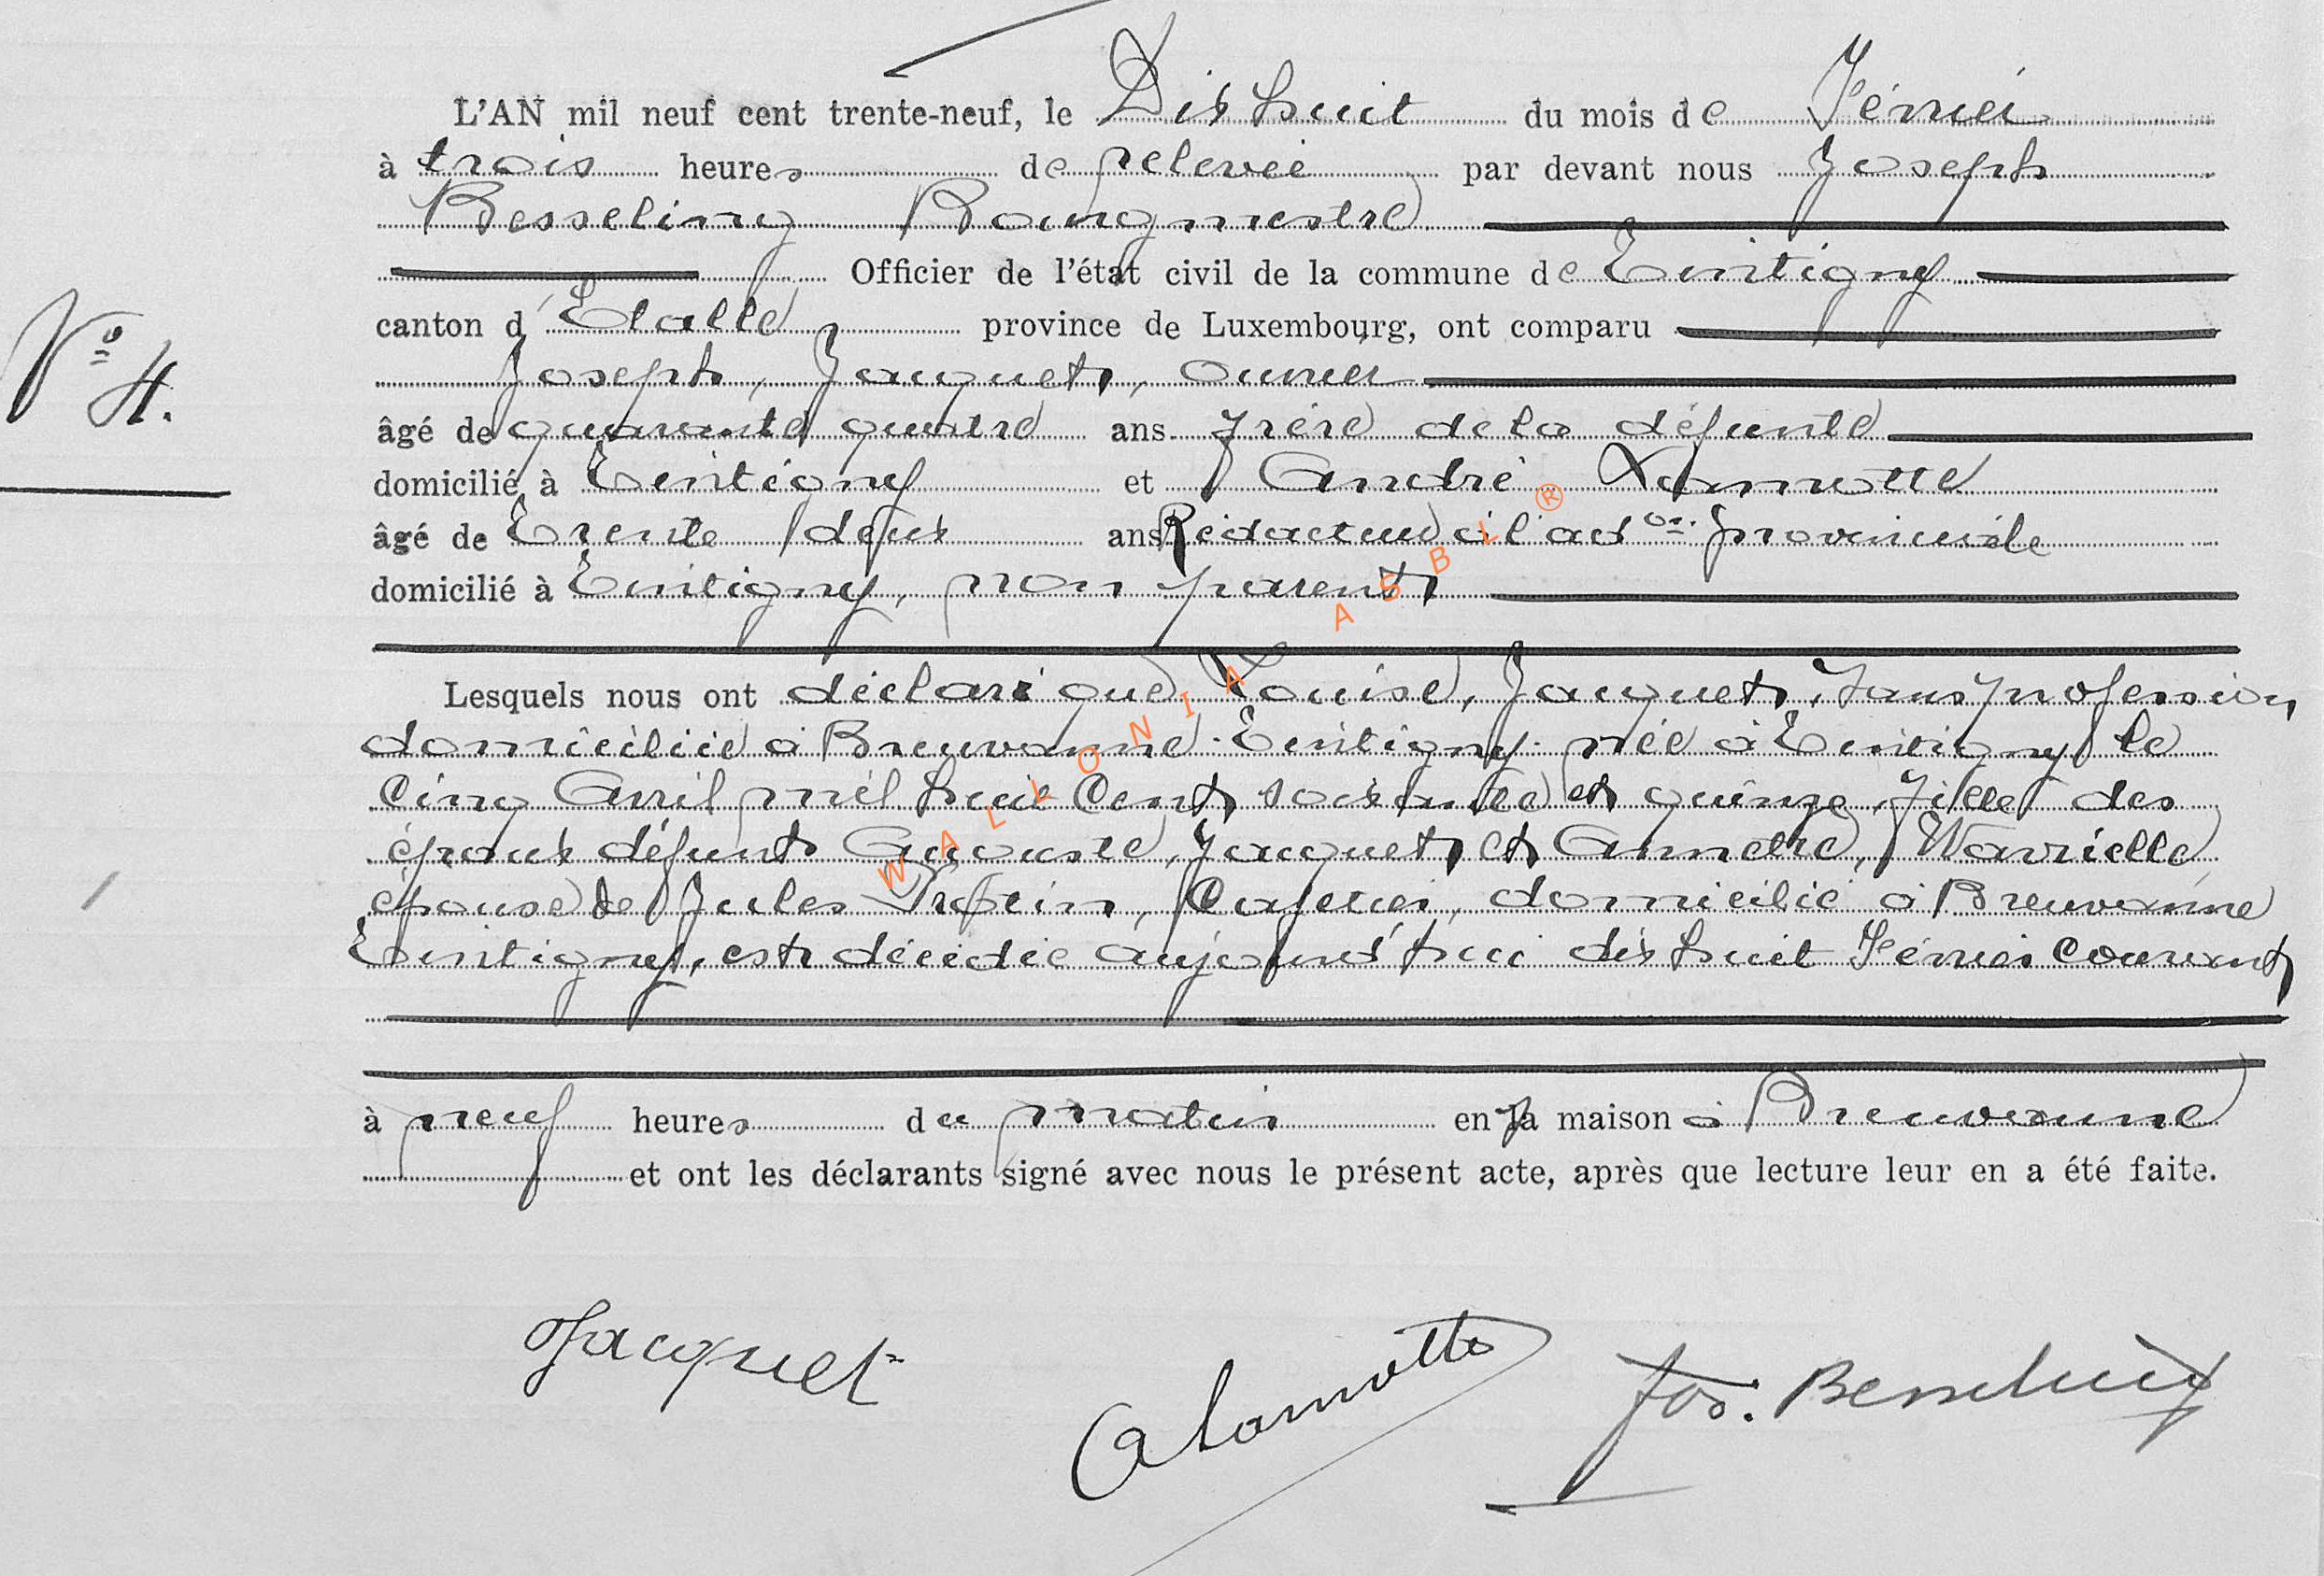 L'AN mil neuf cent trente-neuf, le Dix huit du mois de Février
à trois heures de relevée par devant nous Joseph
Besseling Bourgmestre
Officier de l'état civil de la commune de Tintigny
canton d'Etalle province de Luxembourg, ont comparu
Joseph, Jacquet, ouvrier
N° 4.
âgé de quarante quatre ans frère de la défunte
domicilié à Tintigny et André Lamotte
âgé de Trente deux ans Rédacteur à l'ad on provinciale
domicilié à Tintigny, non parent
Lesquels nous ont déclaré que Louise, Jacquet, sans profession
domiciliée à Breuvanne-Tintigny née à Tintigny le
Cinq Avril mil huit Cent soixante et quinze, fille des
époux défunts Auguste, Jacquet et Annette, Wavrielle
épouse de Jules, Cafetier, domicilié à Breuvanne
Tintigny, est décédée aujourd'hui dix huit Février courant
à neuf heures du matin en sa maison à Breuvanne
et ont les déclarants signé avec nous le présent acte, après que lecture leur en a été faite.
Jacquet
A Lamotte
Jos. Besseling
WALLONIA ASBL ®